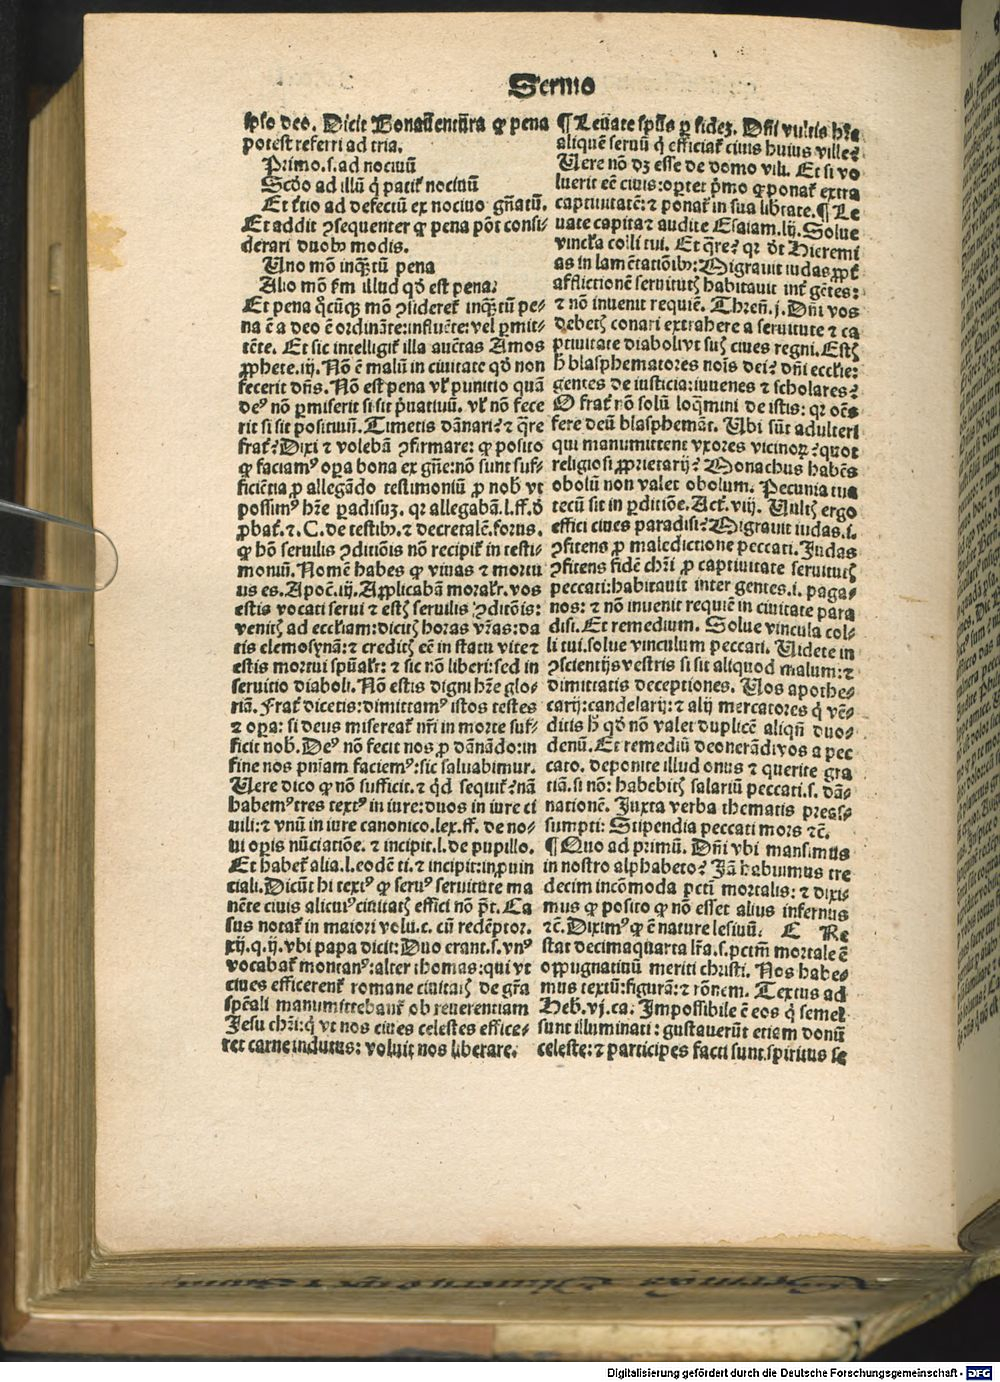 Sermo
ipso deo. Dicit Bonauentura ꝙ pena
potest referri ad tria.
Primo.s.ad nociuũ
Scdo ad illũ q̇ patit᷑ nociuũ
Et t̃tio ad defectũ ex nociuo gñatũ.
Et addit ꝯsequenter ꝙ pena põt consi-
derari duobꝰ modis.
Uno mõ inq̃tũ pena
Alio mõ s̃m illud qd̃ est pena.
Et pena q̃cũq; mõ ꝯsideret᷑ inq̃tũ pe-
na ẽ a deo ẽ ordinãte:influẽte:vel ꝑmit-
tẽte. Et sic intelligit᷑ illa auctas Amos
ꝓphete.iij. Nõ ẽ malũ in ciuitate qd̃ non
fecerit dñs. Nõ est pena vl̃ punitio quã
deꝰ nõ ꝑmiserit si sit p̃uatiuũ. vl̃ nõ fece
rit si sit positiuũ. Timetis dãnari? ⁊ q̃re
frat᷑? Dixi ⁊ volebã ꝯfirmare: ꝙ posito
ꝙ faciamꝰ oꝑa bona ex gñe:nõ sunt suf-
ficiẽtia ꝓ allegãdo testimoniũ ꝓ nob̃ vt
possimꝰ hr̃e ꝑadisuꝫ. qꝛ allegabã.l.ff.d̃
ꝓbat᷑. ⁊.C. de testibꝰ. ⁊ decretalẽ.forus.
ꝙ hõ seruilis ꝯditiõis nõ recipit᷑ in testi-
moniũ. Nomẽ habes ꝙ viuas ⁊ mortu
us es. Apoc̃.iij. Applicabã moral᷑r. vos
estis vocati serui ⁊ estꝭ seruilis ꝯditõis:
venitꝭ ad eccl̃iam:dicitꝭ horas vr̃as:da
tis elemosynã:⁊ creditꝭ eẽ in statu vite ⁊
estis mortui spũal᷑r: ⁊ sic nõ liberi:sed in
seruitio diaboli. Nõ estis digni hr̃e glo-
riã. Frat᷑ dicetis:dimittamꝰ istos testes
⁊ oꝑa: si deus misereat᷑ nr̃i in morte suf-
ficit nob̃. Deꝰ nõ fecit nos ꝓ dãnãdo:in
fine nos pñiam faciemꝰ:sic saluabimur.
Uere dico ꝙ nõ sufficit. ⁊ qd̃ sequit᷑? nã
habemꝰ tres textꝰ in iure:duos in iure ci
uili:⁊ vnũ in iure canonico.lex.ff. de no-
ui opis nũciatiõe. ⁊ incipit.l.de pupillo.
Et habet᷑ alia.l.eodẽ ti. ⁊ incipit:in ꝓuin
ciali.Dicũt hi textꝰ ꝙ seruꝰ seruitute ma
nẽte ciuis alicuiꝰ ciuitatꝭ effici nõ p̃t. Ca
sus notat᷑ in maiori volu.c. cũ redẽptor.
xij.q.ij. vbi papa dicit: Duo erant.s.vnꝰ
vocabat᷑ montanꝰ:alter thomas:qui vt
ciues efficerent᷑ romane ciuitatꝭ de gr̃a
sp̃eali manumittebant᷑ ob reuerentiam
Jesu chr̃i:q̇ vt nos ciues celestes effice-
ret carne indutus: voluit nos liberare.
¶ Leuate spũs ꝑ fideꝫ. Dñi vultis hr̃e
aliquẽ seruũ q̇ efficiat᷑ ciuis huius ville?
Uere nõ dꝫ esse de domo vili. Et si vo
luerit eẽ ciuis:oꝑtet p̃mo ꝙ ponat᷑ extra
captiuitatẽ: ⁊ ponat᷑ in sua lib̃tate.¶ Le
uate capita ⁊ audite Esaiam.lij. Solue
vincl̃a colli tui. Et q̃re? qꝛ d̃t Hieremi
as in lamẽtatiõibꝰ: Migrauit iudas ꝓpt᷑
afflictionẽ seruitutꝭ habitauit int᷑ gẽtes:
⁊ nõ inuenit requiẽ. Threñ.j. Dñi vos
debetꝭ conari extrahere a seruitute ⁊ ca
ptiuitate diaboli vt sitꝭ ciues regni. Estꝭ
h̃ blasphematores nois̃ dei? dñi eccl̃ie:
gentes de iusticia:iuuenes ⁊ scholares?
O frat᷑ nõ solũ loq̃mini de istis: qꝛ oẽs
fere deũ blasphemãt. Ubi sũt adulteri
qui manumittent vxores vicinoꝝ? quot
religiosi ꝓprietarij? Monachus habẽs
obolũ non valet obolum. Pecunia tua
tecũ sit in ꝑditiõe. Act᷑. viij. Uultꝭ ergo
effici ciues paradisi? Migrauit iudas.i.
ꝯfitens ꝓ maledictione peccati. Judas
ꝯfitens fidẽ chr̃i ꝓ captiuitate seruitutꝭ
peccati:habitauit inter gentes.i. paga-
nos: ⁊ nõ inuenit requiẽ in ciuitate para
disi. Et remedium. Solue vincula col-
li tui.solue vinculum peccati. Uidete in
ꝯscientijs vestris si sit aliquod malum:⁊
dimittatis deceptiones. Uos apothe-
carij:candelarij: ⁊ alij mercatores q̇ vẽ-
ditis h̃ qd̃ nõ valet duplicẽ aliqñ duo-
denũ. Et remediũ deonerãdi vos a pec
cato. deponite illud onus ⁊ querite gra
tiã.si nõ: habebitꝭ salariũ peccati.s. dã-
nationẽ. Juxta verba thematis preas-
sumpti: Stipendia peccati mors ⁊c̃.
¶ Quo ad primũ. Dñi vbi mansimus
in nostro alphabeto? Jã habuimus tre
decim incõmoda pctĩ mortalis: ⁊ dixi-
mus ꝙ posito ꝙ nõ esset alius infernus
⁊c̃. Diximꝰ ꝙ ẽ nature lesiuũ. E Re
stat decimaquarta lr̃a.s.pctm̃ mortale ẽ
oppugnatiuũ meriti christi. Nos habe-
mus textũ:figurã: ⁊ rõnem. Textus ad
Heb̃.vj.ca. Impossibile ẽ eos q̇ semel
sunt illuminati: gustauerũt etiam donũ
celeste: ⁊ participes facti sunt.spiritus se
Digitalisierung gefördert durch die Deutsche Forschungsgemeinschaft - DFG